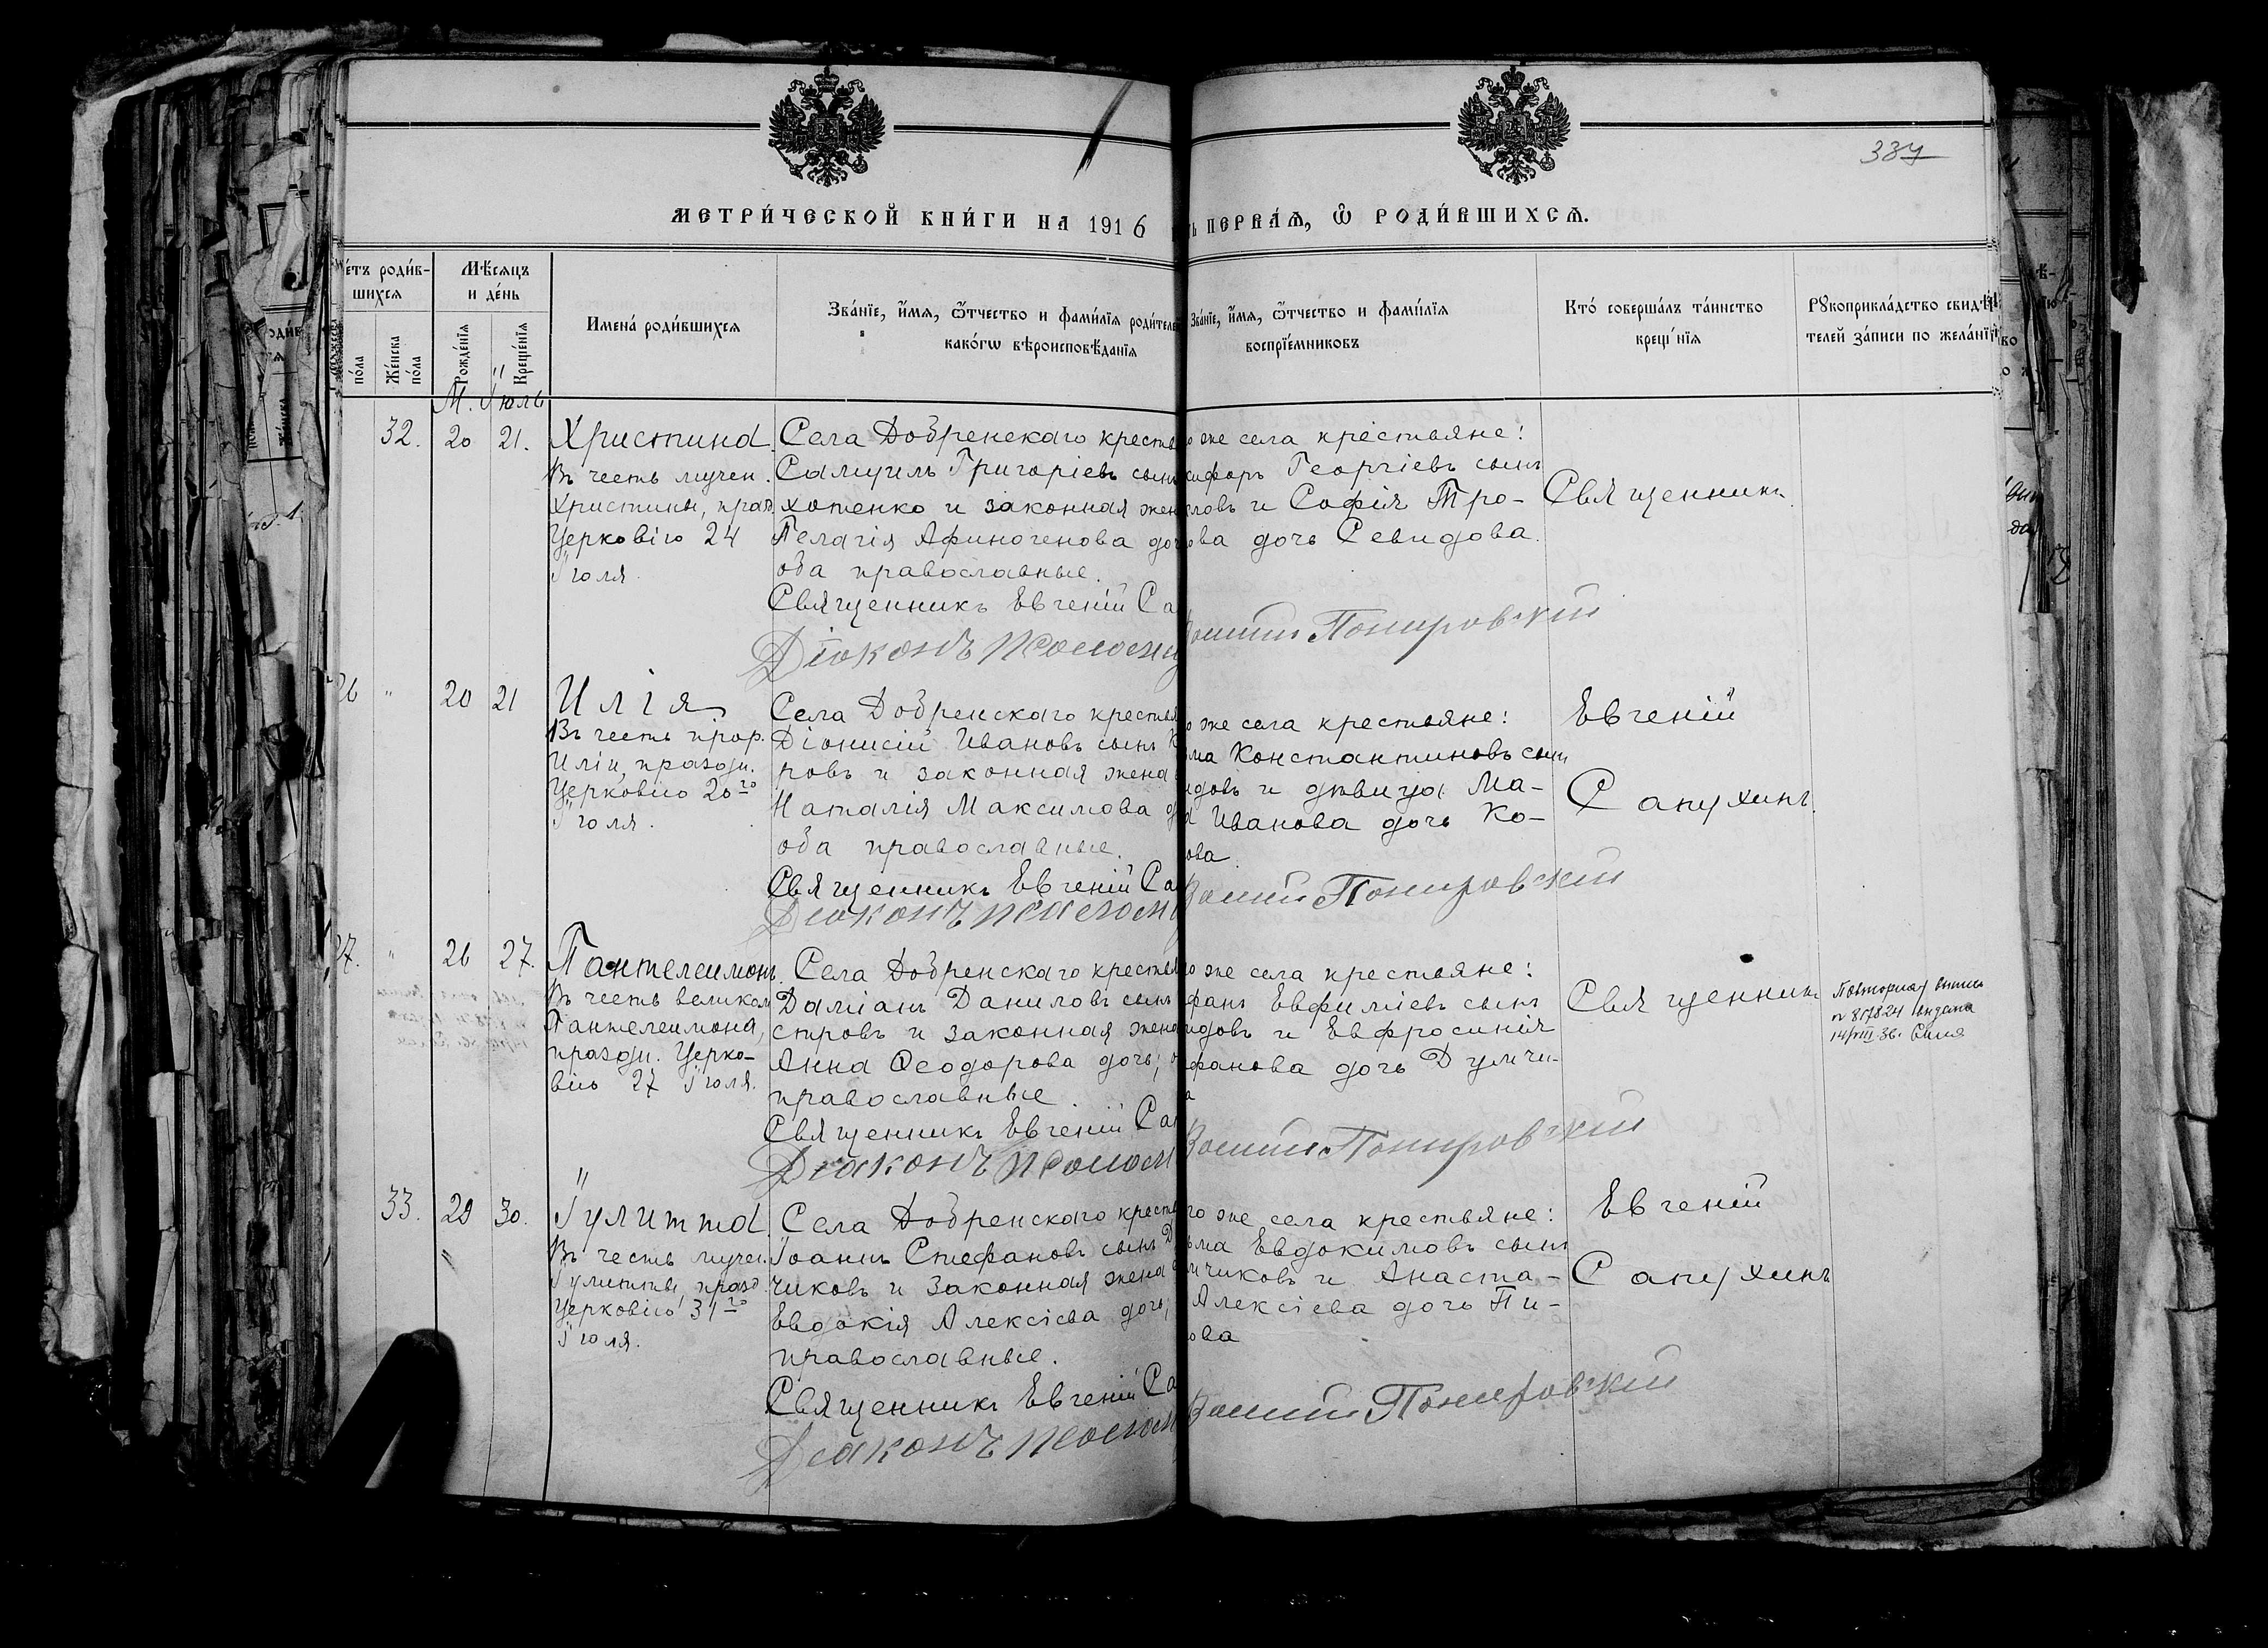 337
МЕТРИ́ЧЕСКОЙ КНИ́ГИ НА 1916
ПЕРВА́Ѧ, Ѿ РОДИ́ВШИХСѦ.
роди́в-
шихсѧ
Мѣ́сѧцъ
и де́нь
по́ла
Же́нска по́ла
Рожде́нїѧ
Креще́нїѧ
Имена̀ роди́вшихсѧ
Зва́нїе, и҆́мѧ, ѻ҆́тчество и фами́лїѧ родителей
како́гѡ вѣроисповѣ́данїѧ
Зва́нїе, и҆́мѧ, ѻ҆́тчество и фами́лїѧ
воспрїе́мниковъ
Кто́ соверша́лъ та́инство
креще́нїѧ
Рꙋкоприкла́дство свидѣ́-
телей за́писи по жела́нїю
М. Іюль
32. 20 21.
Христина
Въ честь мучен.
Христины, празд.
Церковію 24
Іюля.
Села Добренскаго крестья
Самуилъ Григоріевъ сынъ
хотенко и законная жена
Пелагія Афиногенова доч
оба православные.
Священникъ Евгеній Са
Діаконъ псалом
же села крестьяне:
кифоръ Георгіевъ сынъ
ловъ и Софія Тро-
ова дочь Севидова.
Понировскій
Священникъ
26 " 20 21
Илія
Въ честь прор.
Иліи, праздн.
Церковію 20го
Іюля.
Села Добренскаго крестья
Діонисій Ивановъ сынъ К
ровъ и законная жена
Наталія Максимова д
оба православные.
Священникъ Евгеній Са
Діаконъ псалом
же села крестьяне:
ма Константиновъ сынъ
идовъ и дѣвица Ма-
Иванова дочь Ко-
ова.
Понировскій
Евгеній
Сапухинъ.
27. " 26 27.
Пантелеимонъ.
Въ честь великом
Пантелеимона,
праздн. Церко-
вію 27 Іюля.
Села Добренскаго крестья
Даміанъ Даниловъ сынъ
стровъ и законная жена
Анна Ѳеодорова дочь;
православные.
Священникъ Евгеній Са
Діаконъ псалом
же села крестьяне:
фанъ Евфиміевъ сынъ
идовъ и Евфросинія
фанова дочь Думчи-
а
Понировскій
Священникъ
Повторная
выдана
33. 29 30.
Іулитта
Въ честь мучен.
Іулитты, празд.
Церковію 31го
Іюля.
Села Добренскаго кресть
Іоаннъ Стефановъ сынъ Д
чиковъ и законная жена
Евдокія Алексіева дочь;
православные.
Священникъ Евгеній Са
Діаконъ псалом
го же села крестьяне:
ма Евдокимовъ сынъ
мчиковъ и Анаста-
Алексіева дочь Пи-
ова
Понировскій
Евгеній
Сапухинъ